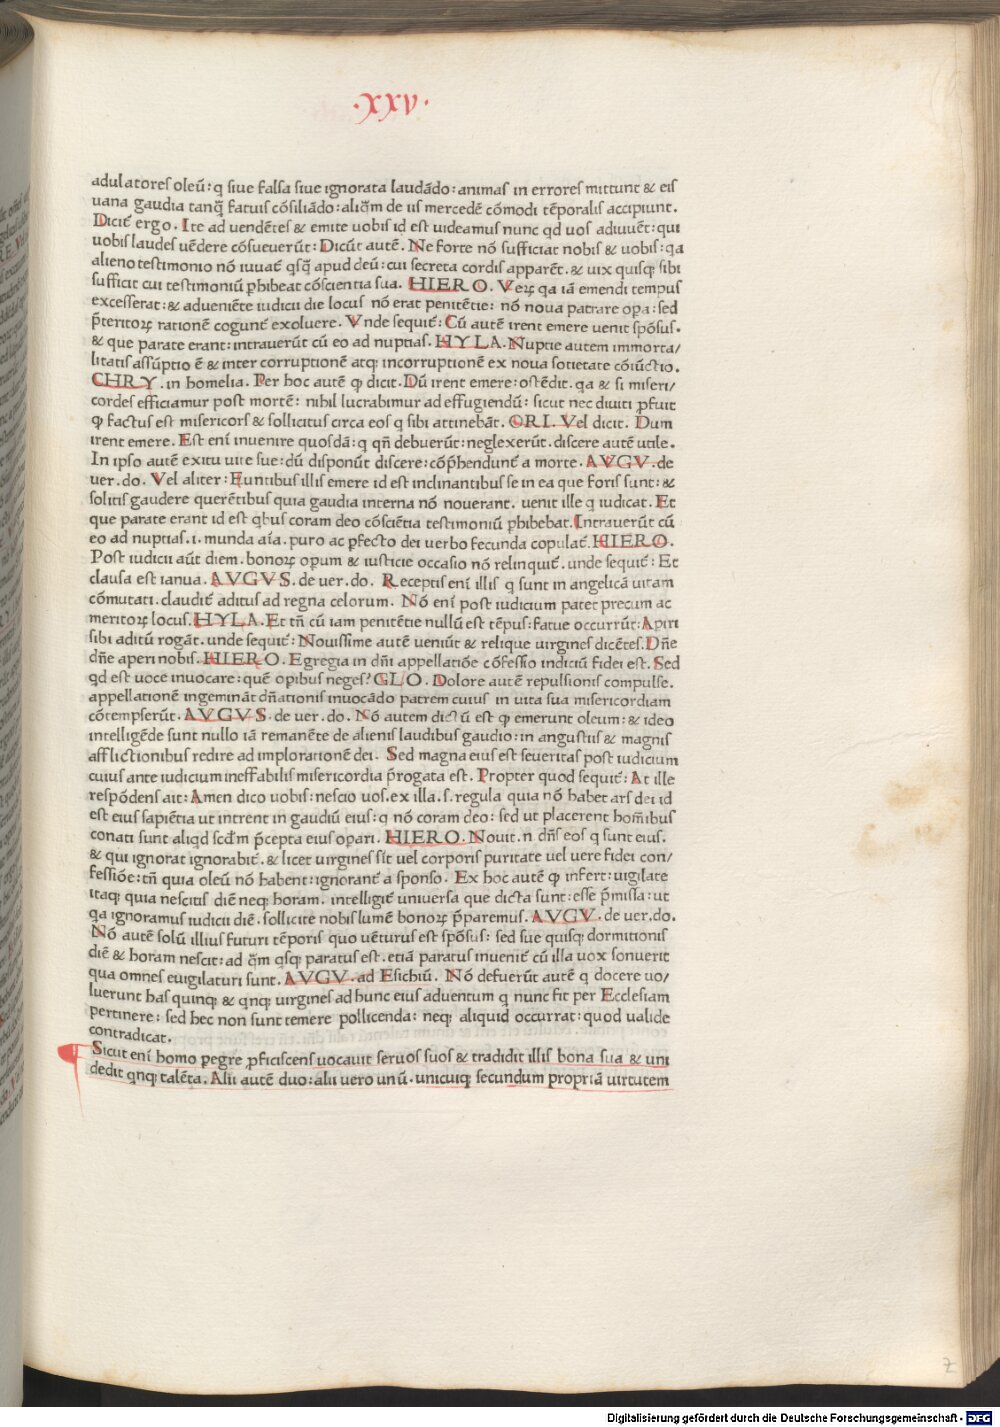 ·XXV·
adulatores oleū: q siue falsa siue ignorata laudādo: animas in errores mittunt & eis
uana gaudia tanq̄ fatuis cōsiliādo: aliq̄m de iis mercedē cōmodi tēporalis accipiunt.
Dicit̄ ergo. Ite ad vendētes & emite uobis id est uideamus nunc qd uos adiuuēt: qui
uobis laudes uēdere cōsueuerūt: Dicūt autē. Ne forte nō sufficiat nobis & uobis: qa
alieno testimonio nō iuuat̄ qsq̄ apud deū: cui secreta cordis apparēt. & uix quisq; sibi
sufficit cui testimoniū phibeat cōscientia sua. HIERO. Veꝝ qa iā emendi tempus
excesserat: & adueniēte iudicii die locus nō erat penitētie: nō noua patrare opa: sed
p̄teritoꝝ rationē cogunt̄ exoluere. Vnde sequit̄: Cū autē irent emere uenit spōsus.
& que parate erant: intrauerūt cū eo ad nuptias. HYLA. Nuptie autem immorta/
litatis assūptio ē & inter corruptionē atq; incorruptionē ex noua societate cōiūctio.
CHRY. in homelia. Per hoc autē q̄ dicit. Dū irent emere: ostēdit. qa & si miseri/
cordes efficiamur post mortē: nihil lucrabimur ad effugiendū: sicut nec diuiti pfuit
q̄ factus est misericors & sollicitus circa eos q sibi attinebāt. ORI. Vel dicit. Dum
irent emere. Est eni inuenire quosdā: q qn̄ debuerūt: neglexerūt. discere autē utile.
In ipso autē exitu uite sue: dū disponūt discere: cōp̄hendunt̄ a morte. AVGV. de
uer. do. Vel aliter: Euntibus illis emere id est inclinantibus se in ea que foris sunt: &
solitis gaudere querētibus quia gaudia interna nō nouerant. uenit ille q iudicat. Et
que parate erant id est qbus coram deo cōsciētia testimoniū phibebat. Intrauerūt cū
eo ad nuptias. i. munda aīa. puro ac pfecto dei uerbo fecunda copulat̄. HIERO.
Post iudicii aūt diem. bonoꝝ opum & iusticie occasio nō relinquit̄. unde sequit̄: Et
clausa est ianua. AVGVS. de uer. do. Receptis eni illis q sunt in angelicā uitam
cōmutati. claudit̄ aditus ad regna celorum. Nō eni post iudicium patet precum ac
meritoꝝ locus. HYLA. Et tn̄ cū iam penitētie nullū est tēpus: fatue occurrūt: Apiri
sibi aditū rogāt. unde sequit̄: Nouissime autē veniūt & relique uirgines dicētes. Dn̄e
dn̄e aperi nobis. HIERO. Egregia in dn̄i appellatiōe cōfessio indiciū fidei est. Sed
qd est uoce inuocare: quē opibus neges? GLO. Dolore autē repulsionis compulse.
appellationē ingemināt dn̄ationis inuocādo patrem cuius in uita sua misericordiam
cōtempserūt. AVGVS. de uer. do. Nō autem dictū est q̄ emerunt oleum: & ideo
intelligēde sunt nullo iā remanēte de alienis laudibus gaudio: in angustiis & magnis
afflictionibus redire ad implorationē dei. Sed magna eius est seueritas post iudicium
cuius ante iudicium ineffabilis misericordia p̄rogata est. Propter quod sequit̄: At ille
respōdens ait: Amen dico uobis: nescio uos. ex illa. s. regula quia nō habet ars dei id
est eius sapiētia ut intrent in gaudiū eius: q nō coram deo: sed ut placerent hoībus
conati sunt aliqd scdm p̄cepta eius opari. HIERO. Nouit. n. dn̄s eos q sunt eius.
& qui ignorat ignorabit̄. & licet uirgines sīt uel corporis puritate uel uere fidei con/
fessiōe: tn̄ quia oleū nō habent: ignorant̄ a sponso. Ex hoc autē q̄ infert: uigilate
itaq; quia nescitis diē neq; horam. intelligit̄ uniuersa que dicta sunt: esse p̄missa: ut
qa ignoramus iudicii diē. sollicite nobis lumē bonoꝝ p̄paremus. AVGV. de uer. do.
Nō autē solū illius futuri tēporis quo uēturus est spōsus: sed sue quisq; dormitionis
diē & horam nescit: ad q̄m qsq; paratus est. etiā paratus inuenit̄ cū illa uox sonuerit
qua omnes euigilaturi sunt. AVGV. ad Esichiū. Nō defuerūt autē q docere uo/
luerunt has quinq; & qnq; uirgines ad hunc eius aduentum q nunc fit per Ecclesiam
pertinere: sed hec non sunt temere pollicenda: neq; aliquid occurrat: quod ualide
contradicat.
Sicut eni homo pegre pficiscens uocauit seruos suos & tradidit illis bona sua & uni
dedit qnq; talēta. Alii autē duo: alii uero unū. unicuiq; secundum propriā uirtutem
z
Digitalisierung gefördert durch die Deutsche Forschungsgemeinschaft - DFG